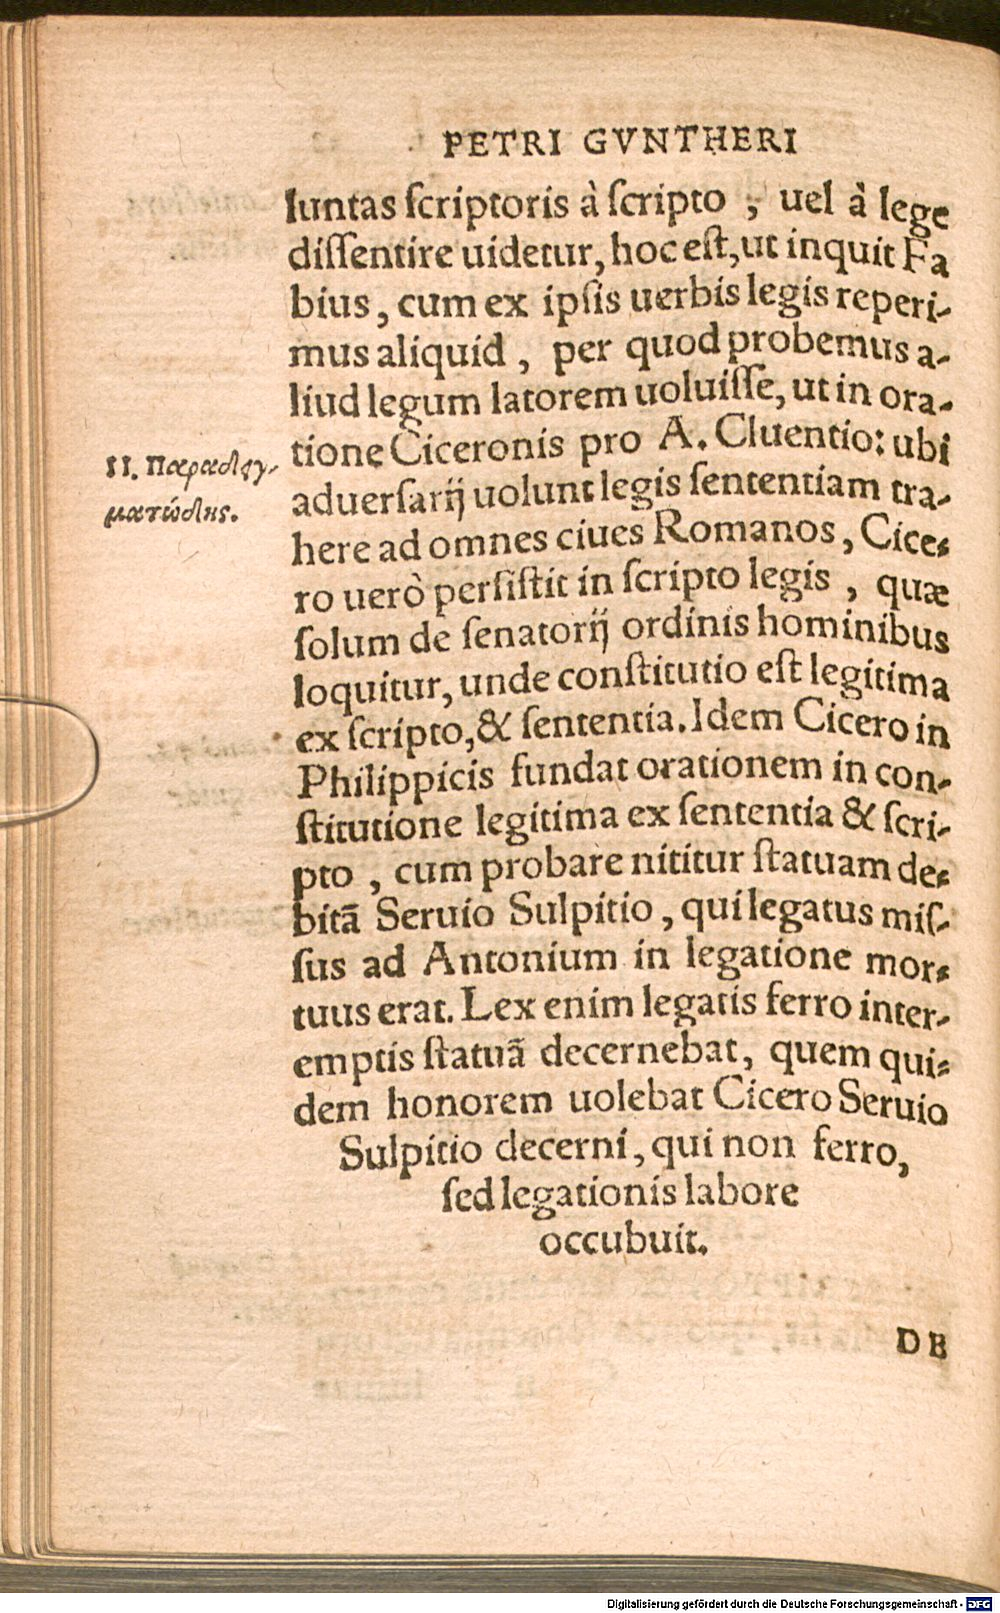 PETRI GVNTHERI
luntas scriptoris à scripto, uel à lege
dissentire uidetur, hoc est, ut inquit Fa
bius, cum ex ipsis uerbis legis reperi-
mus aliquid, per quod probemus a-
liud legum latorem uoluisse, ut in ora-
tione Ciceronis pro A. Cluentio: ubi
II. Παραδειγ-
ματώδης.
aduersarij uolunt legis sententiam tra-
here ad omnes ciues Romanos, Cice-
ro uerò persistit in scripto legis, quæ
solum de senatorij ordinis hominibus
loquitur, unde constitutio est legitima
ex scripto, & sententia. Idem Cicero in
Philippicis fundat orationem in con-
stitutione legitima ex sententia & scri-
pto, cum probare nititur statuam de-
bitã Seruio Sulpitio, qui legatus mis-
sus ad Antonium in legatione mor-
tuus erat. Lex enim legatis ferro inter-
emptis statuã decernebat, quem qui-
dem honorem uolebat Cicero Seruio
Sulpitio decerni, qui non ferro,
sed legationis labore
occubuit.
DE
Digitalisierung gefördert durch die Deutsche Forschungsgemeinschaft - DFG